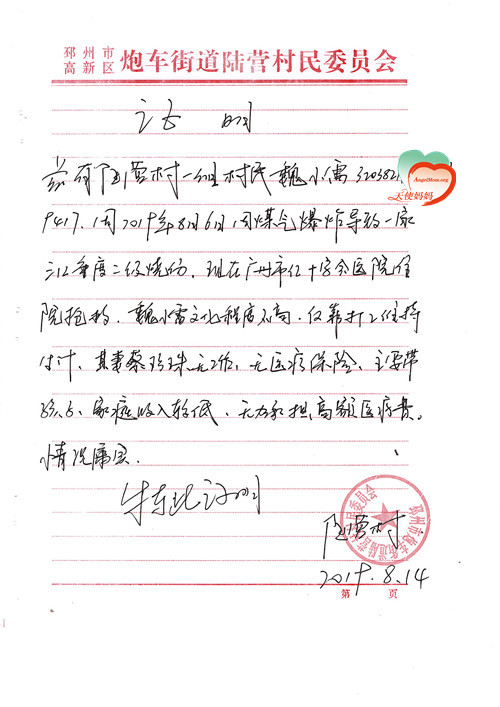 邳州市
高新区 炮车街道陆营村民委员会
证明
兹有陆营村一组村民魏小雷320382
AngelMom.org
天使妈妈
9417.1因2019年8月6日因煤气爆炸导致一家
三口重度二级烧伤,现在广州市红十字会医院住
院抢救,魏小雷文化程度不高,仅靠打工维持
生计,其妻蔡珍珠无工作,无医疗保险,主要带
孩子,家庭收入较低,无力承担高额医疗费。
情况属实。
特此证明
陆营村
2019.8.14
邳州市炮车街道陆营村民委员会
第 页